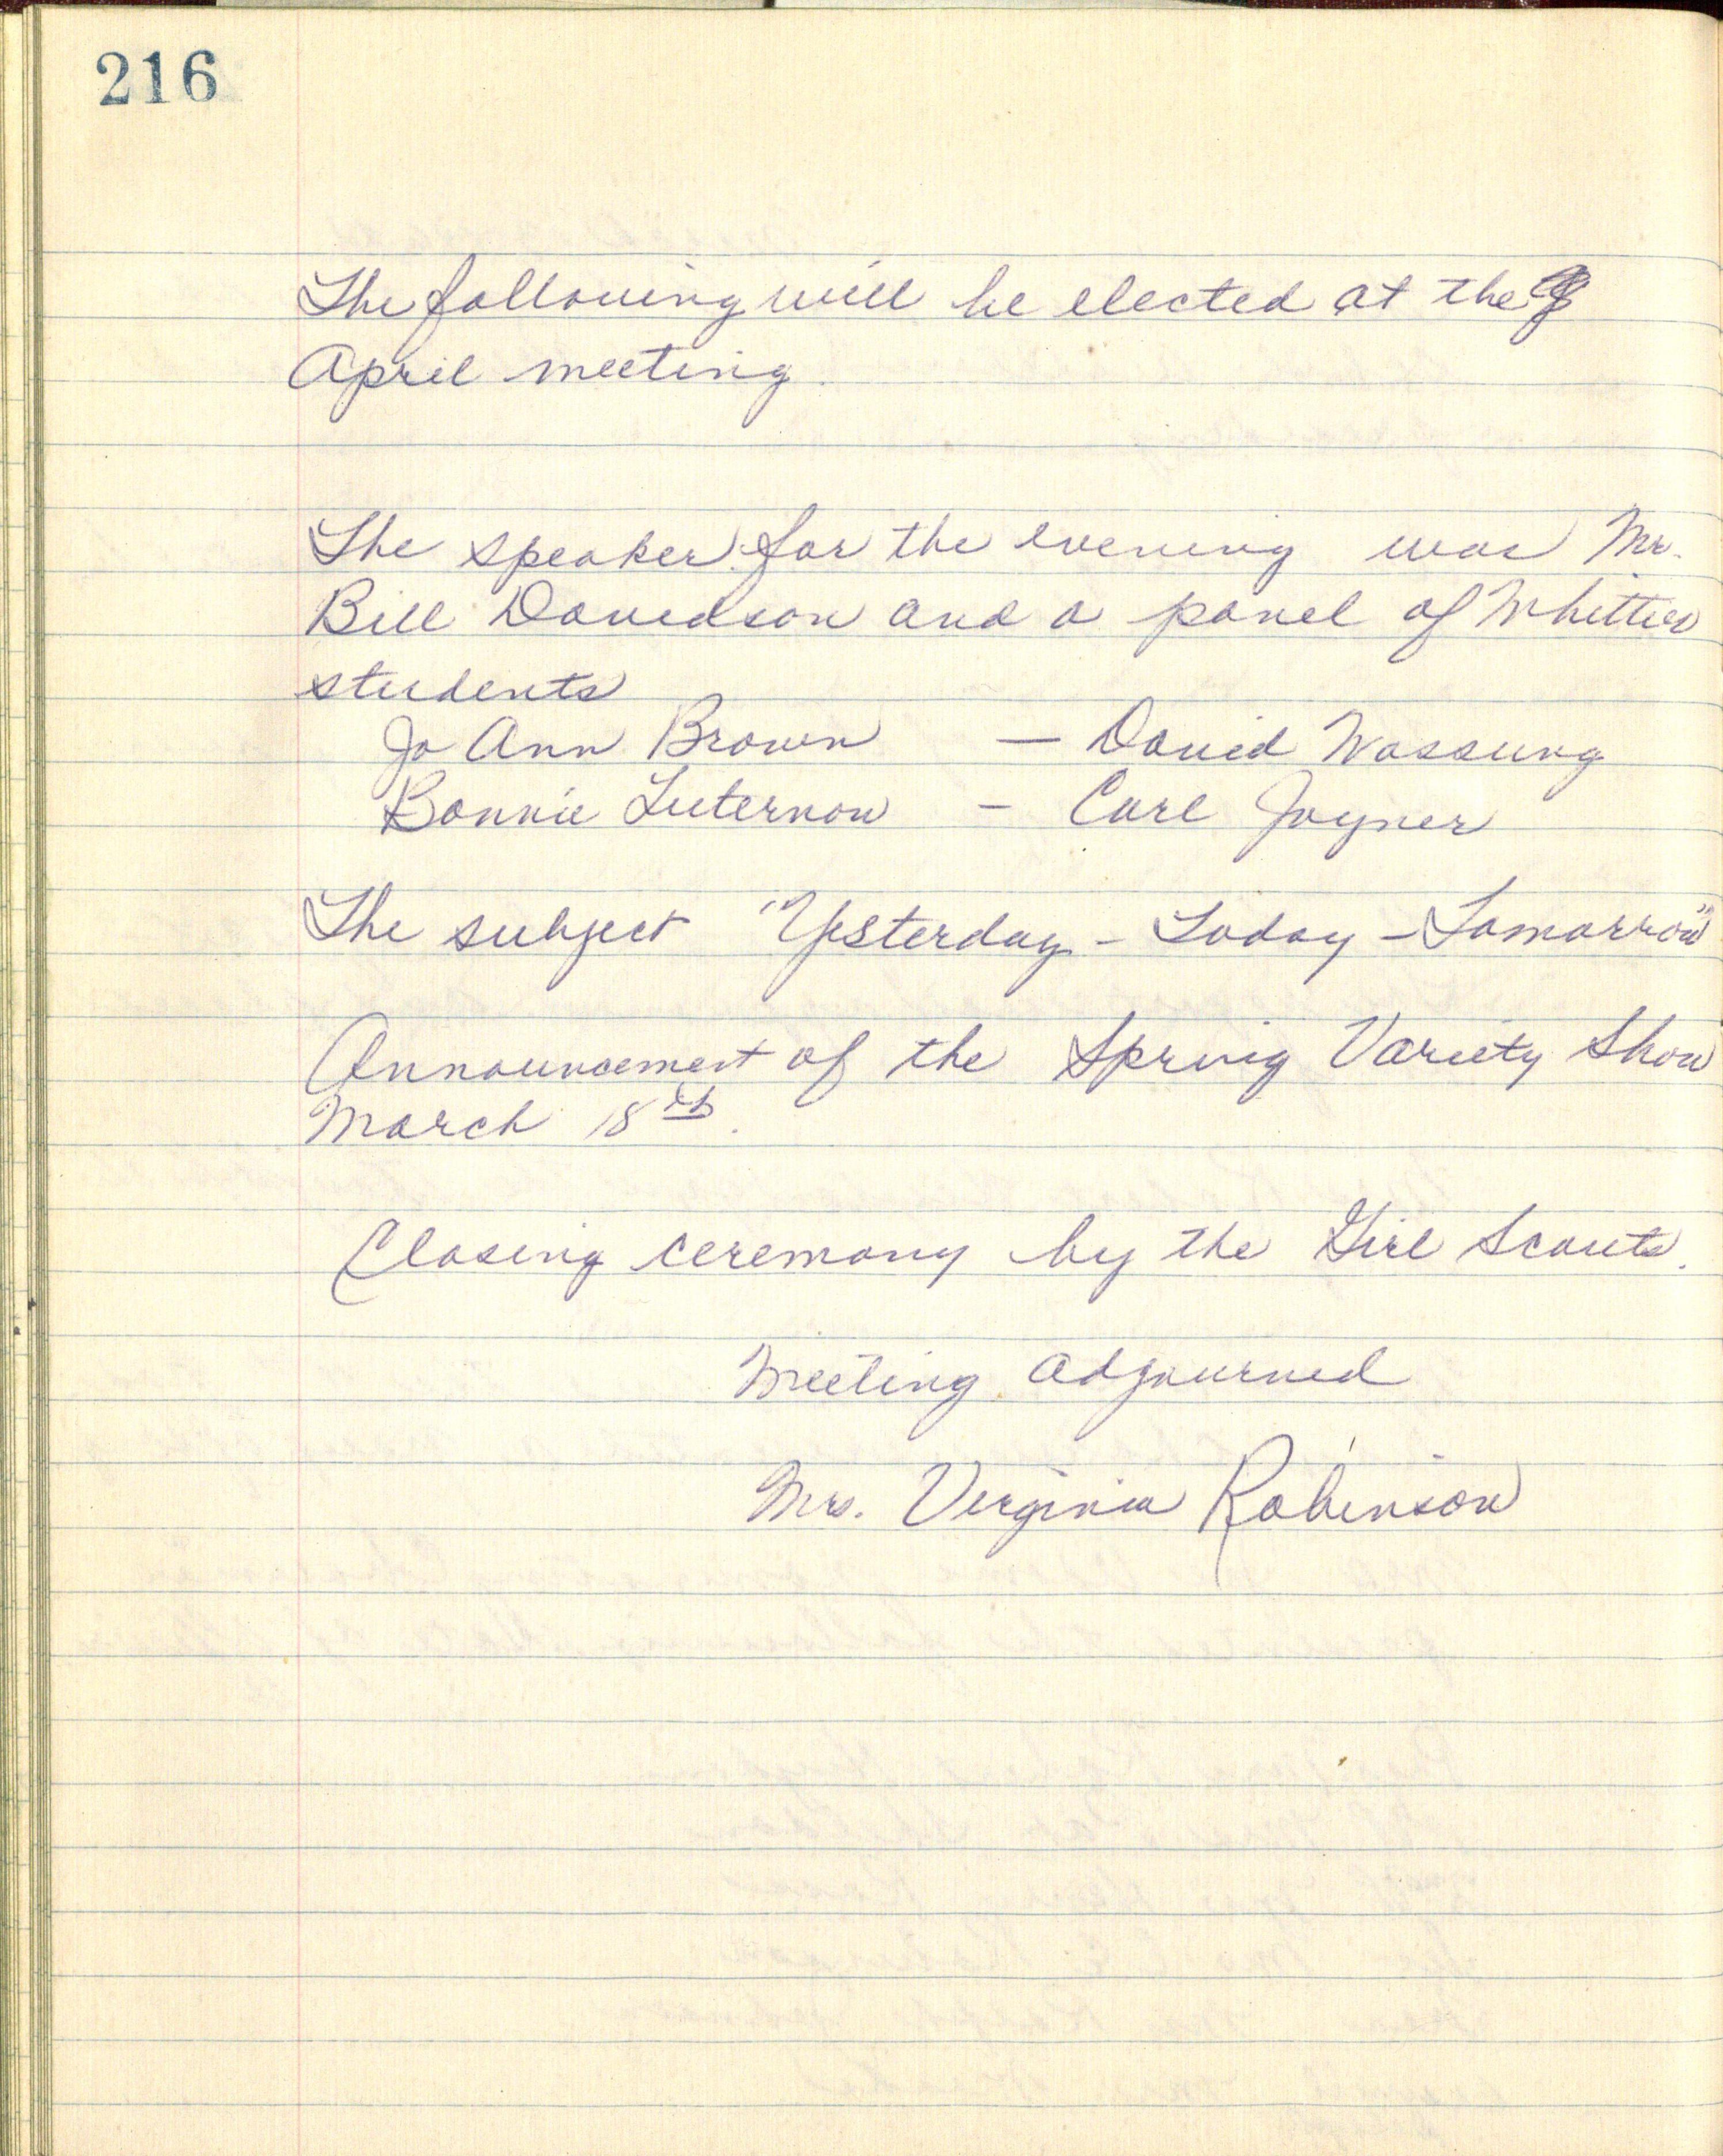 216
The following will be elected at the
April meeting.
The speaker for the evening was Mr.
Bill Davidson and a panel of Whittier
students
Jo Ann Brown — David Wassung
Bonnie Luternow — Carl Joyner
The subject "Yesterday - Today - Tomorrow"
Announcement of the Spring Variety Show
March 18th.
Closing ceremony by the Girl Scouts.
Meeting adjourned
Mrs. Virginia Robinson